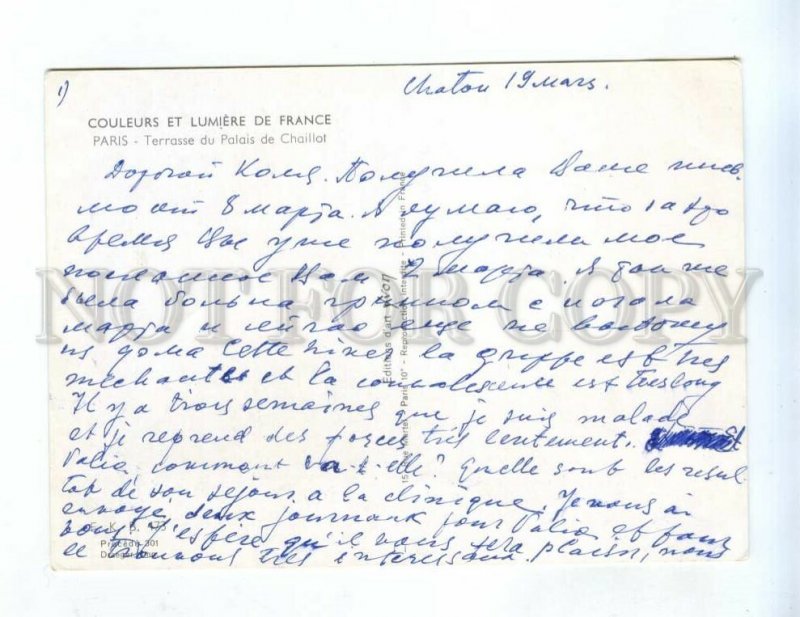 1)
Chatou 19 mars.
COULEURS ET LUMIÈRE DE FRANCE
PARIS - Terrasse du Palais de Chaillot
Дорогой Коля. Получила Ваше пись-
мо от 8 марта. Я думаю, что за это
время Вы уже получили мое
посланное Вам 2 марта. Я тоже
была больна гриппом с начала
марта и сейчас еще не выхожу
из дома. Cette la grippe est très
méchante et la convalescence est très long
Il y a trois semaines que je suis malade
et je reprend des forces très lentement.
Valia, comment va-t-elle? Quelle sont les resul-
tat de son sejour a la clinique. Je vous ai
envoyé deux journaux pour Valia et pour
vous. J'espère qu'il vous fera plaisir, nous
le trouvons très interessant.
Editions d'art YVON
Paris 10e - Reproduction interdite - Printed in France
K. B. 173
Procédé 301
NOT FOR COPY